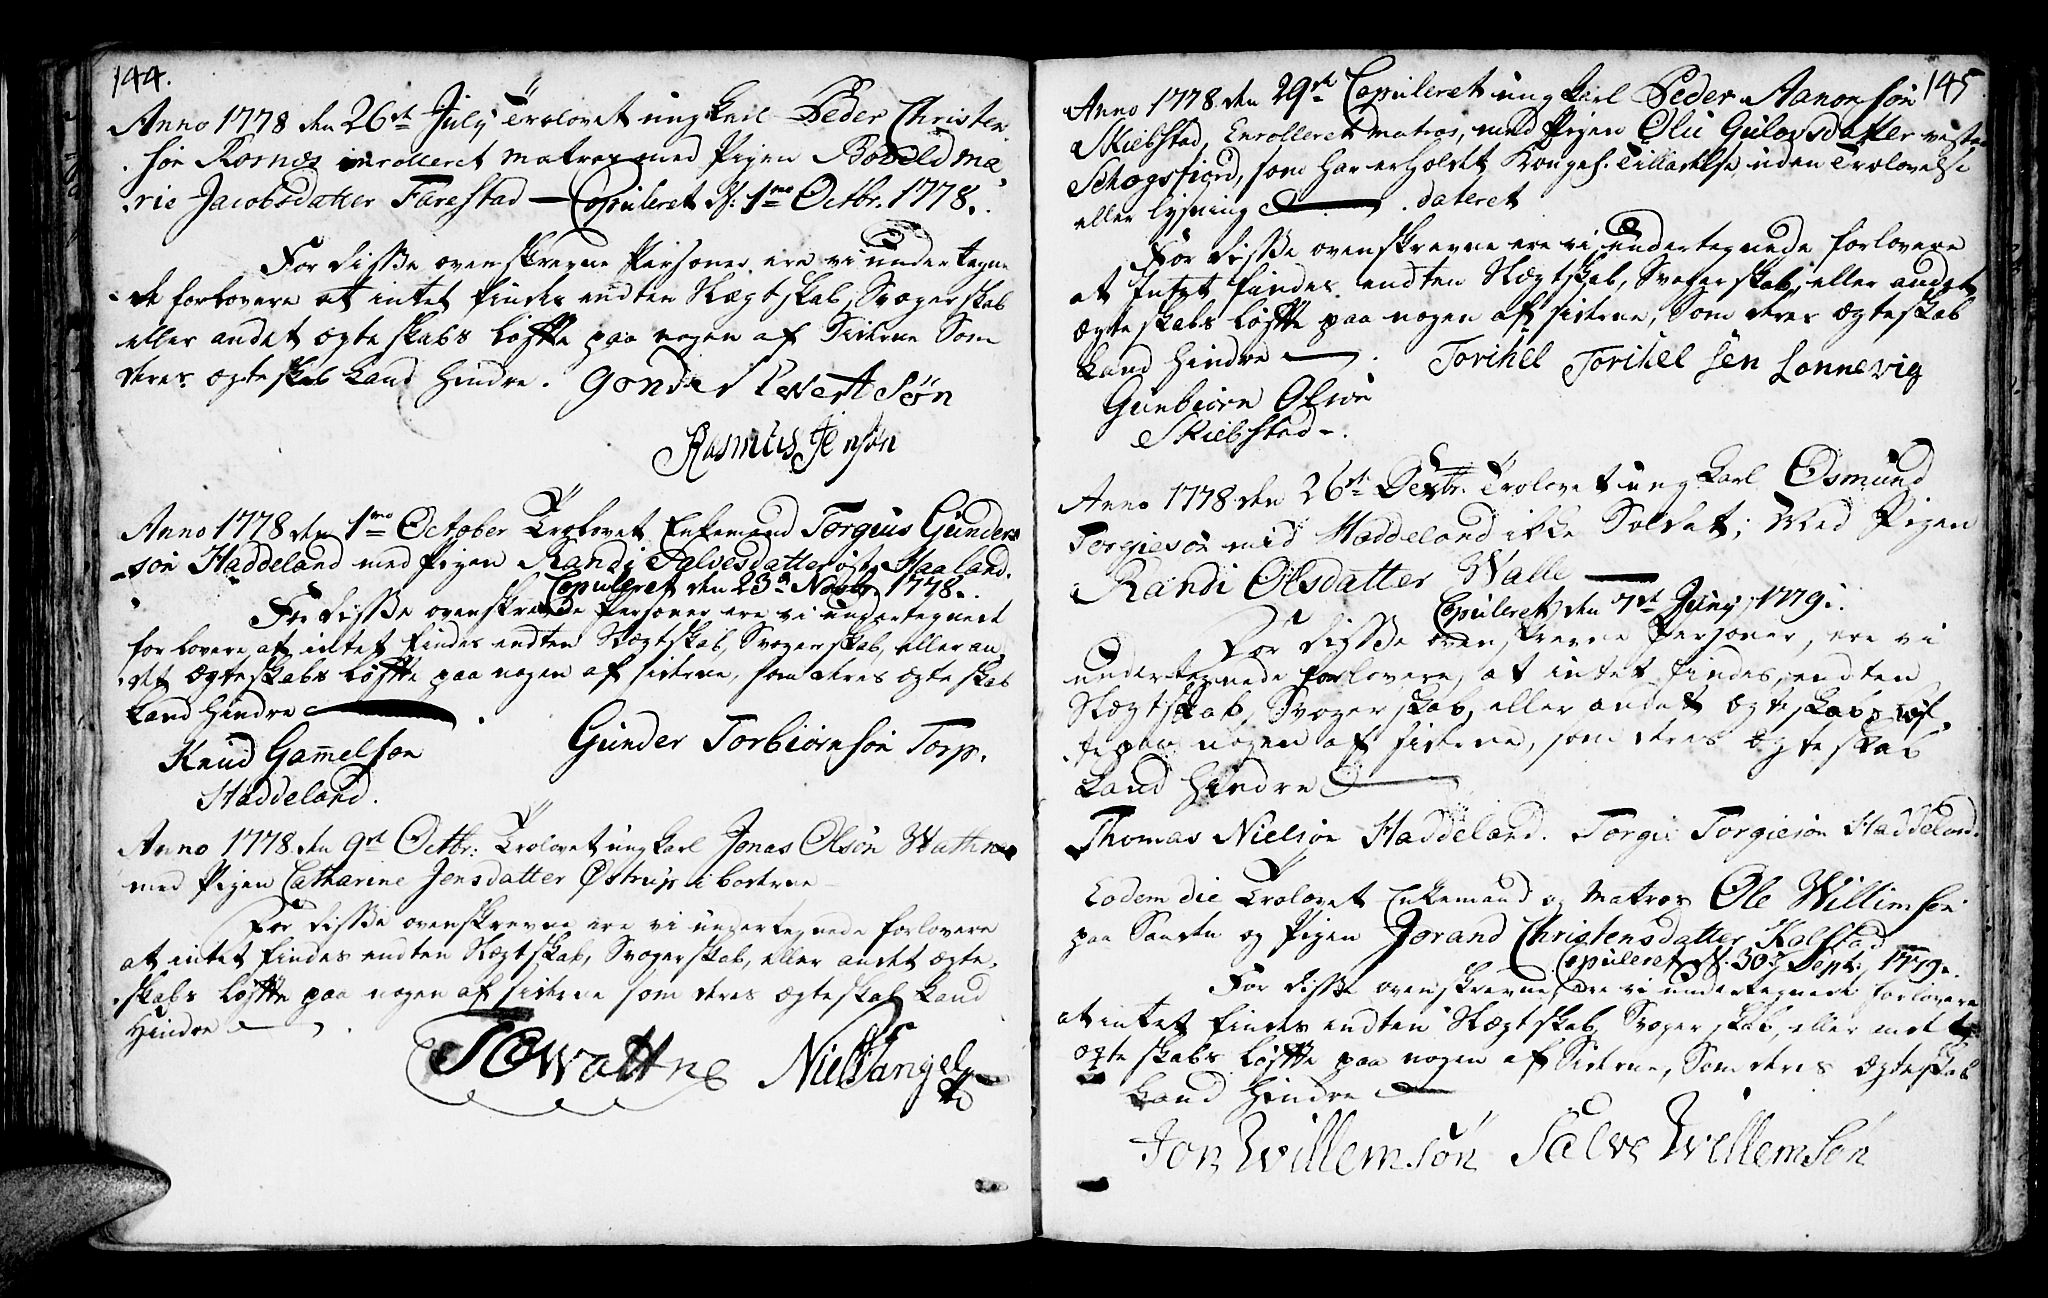 144.
Anno 1778 den 26de July Trolovet ung Karl Peder Christen
søn Rosnes inrolleret Matros med Pigen Bodild Ma
rie Jacobsdatter Farestad — Copuleret d: 1mo Octbr. 1778.
For disse ovenskrevne Personer ere vi undertegne
de forlovere at intet findes endten Slægtskab, Svogerskab
eller andet ægteskabs løfte paa nogen af Siderne Som
deres ægteskab kand hindre. Gonder Evertsøn
Rasmus Jensøn
Anno 1778 den 1mo October Trolovet Enkemand Torgius Gunders
søn Haddeland med Pigen Randi Salvesdatter øste Haaland.
Copuleret den 23de Novbr 1778.
For disse ovenskrevne Personer ere vi undertegnede
forlovere at intet findes endten Slægtskab, Svogerskab, eller an
det ægteskabs løfte paa nogen af siderne, som deres ægteskab
kand hindre
Knud Gamelsøn Gunder Torbiørnsøn Torp.
Haddeland.
Anno 1778 den 9de Octbr: Trolovet ung Karl Jonas Olsøn Wathne
med Pigen Catharine Jensdatter Østrup i boende
For disse ovenskrevne ere vi undertegnede forlovere
at intet findes endten Slægtskab, Svogerskab, eller andet ægte
skabs løfte paa nogen af siderne som deres ægteskab kand
hindre
Wattne Niels Sangel
145
Anno 1778 den 29de Copuleret ung Karl Peder Aanonsøn
Skiebstad, Enrolleret Matros, med Pigen Oliv Gulovsdatter veste
Schogsfiord, som har erholdet Kongel: Tilladelse uden Trolovelse
eller lysning dateret
For disse ovenskrevne ere vi undertegnede forlovere
at Intet findes endten Slægtskab, Svogerskab, eller andet
ægteskabs løfte paa nogen af siderne, Som deres ægteskab
kand hindre Torikel Torikel sen Lonnevig
Gunbiørn Olsøn
Skiebstad.
Anno 1778 den 26de Decbr. Trolovet ung Karl Osmund
Torgiesøn mid Haddeland ikke Soldat; Med Pigen
Randi Olsdatter Walle
Copuleret den 7de Juny 1779.
For disse ovenskrevne Personer, ere vi
undertegnede forlovere, at intet findes, endten
Slægtskab, Svogerskab, eller andet ægteskabs løf
te paa nogen af siderne, som deres ægteskab
kand hindre
Thomas Nielsøn Haddeland. Torgie Torgiesøn Haddeland.
Eodem die Trolovet Enkemand og Matros Ole Willimsøn
paa Sanden og Pigen Jorand Christensdatter Kalstad
Copuleret d: 30te Sept: 1779.
For disse ovenskrevne, ere vi undertegnede forlovere
at intet findes endten Slægtskab, Svogerskab, eller andet
ægteskabs løfte paa nogen af Siderne, Som deres ægteskab
kand hindre
Jon Willemsøn Salve Willemsøn